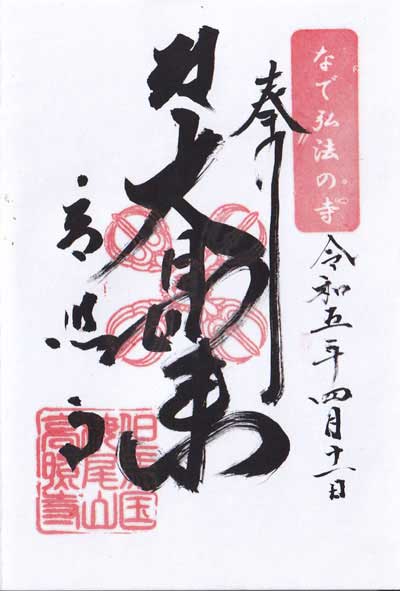 なで弘法の寺
令和五年四月十一日
奉
大日如来
高照寺
但馬国
尾山
高照寺